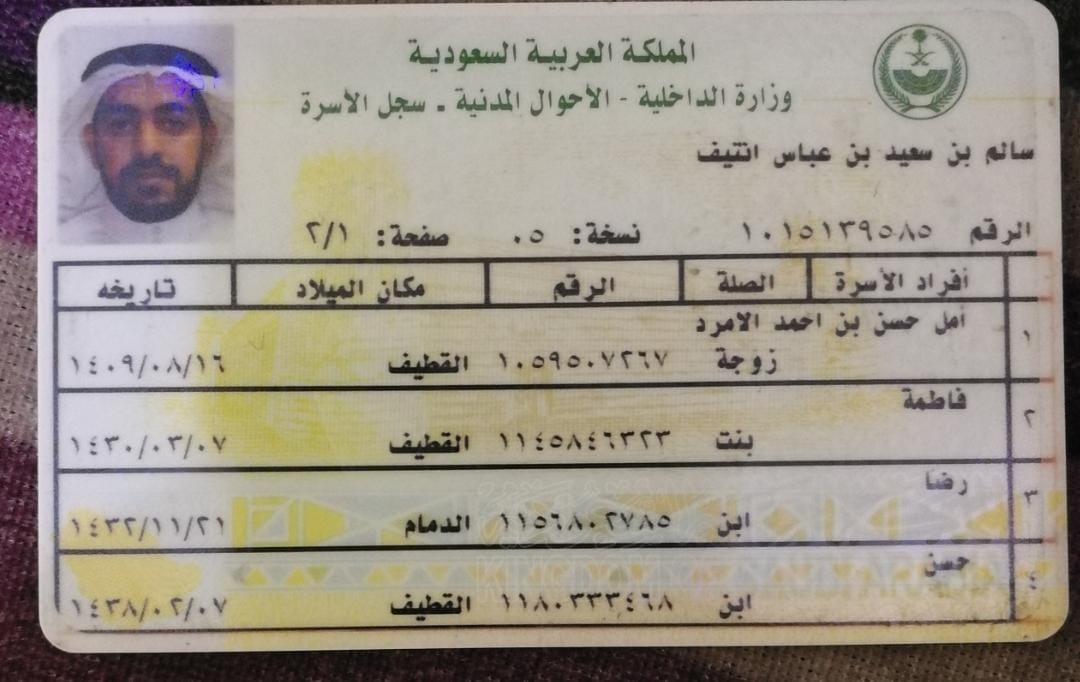 المملكة العربية السعودية
وزارة الداخلية - الأحوال المدنية - سجل الأسرة
سالم بن سعيد بن عباس انتيف
الرقم ١٠١٥١٣٩٥٨٥ نسخة: ٠٥ صفحة: ٢/١
أفراد الأسرة الصلة الرقم مكان الميلاد تاريخه
١ أمل حسن بن احمد الامرد
زوجة ١٠٥٩٥٠٧٢٦٧ القطيف ١٤٠٩/٠٨/١٦
٢ فاطمة
بنت ١١٤٥٨٤٦٣٢٣ القطيف ١٤٣٠/٠٣/٠٧
٣ رضا
ابن ١١٥٦٨٠٢٧٨٥ الدمام ١٤٣٢/١١/٢١
٤ حسن
ابن ١١٨٠٣٣٣٤٦٨ القطيف ١٤٣٨/٠٢/٠٧